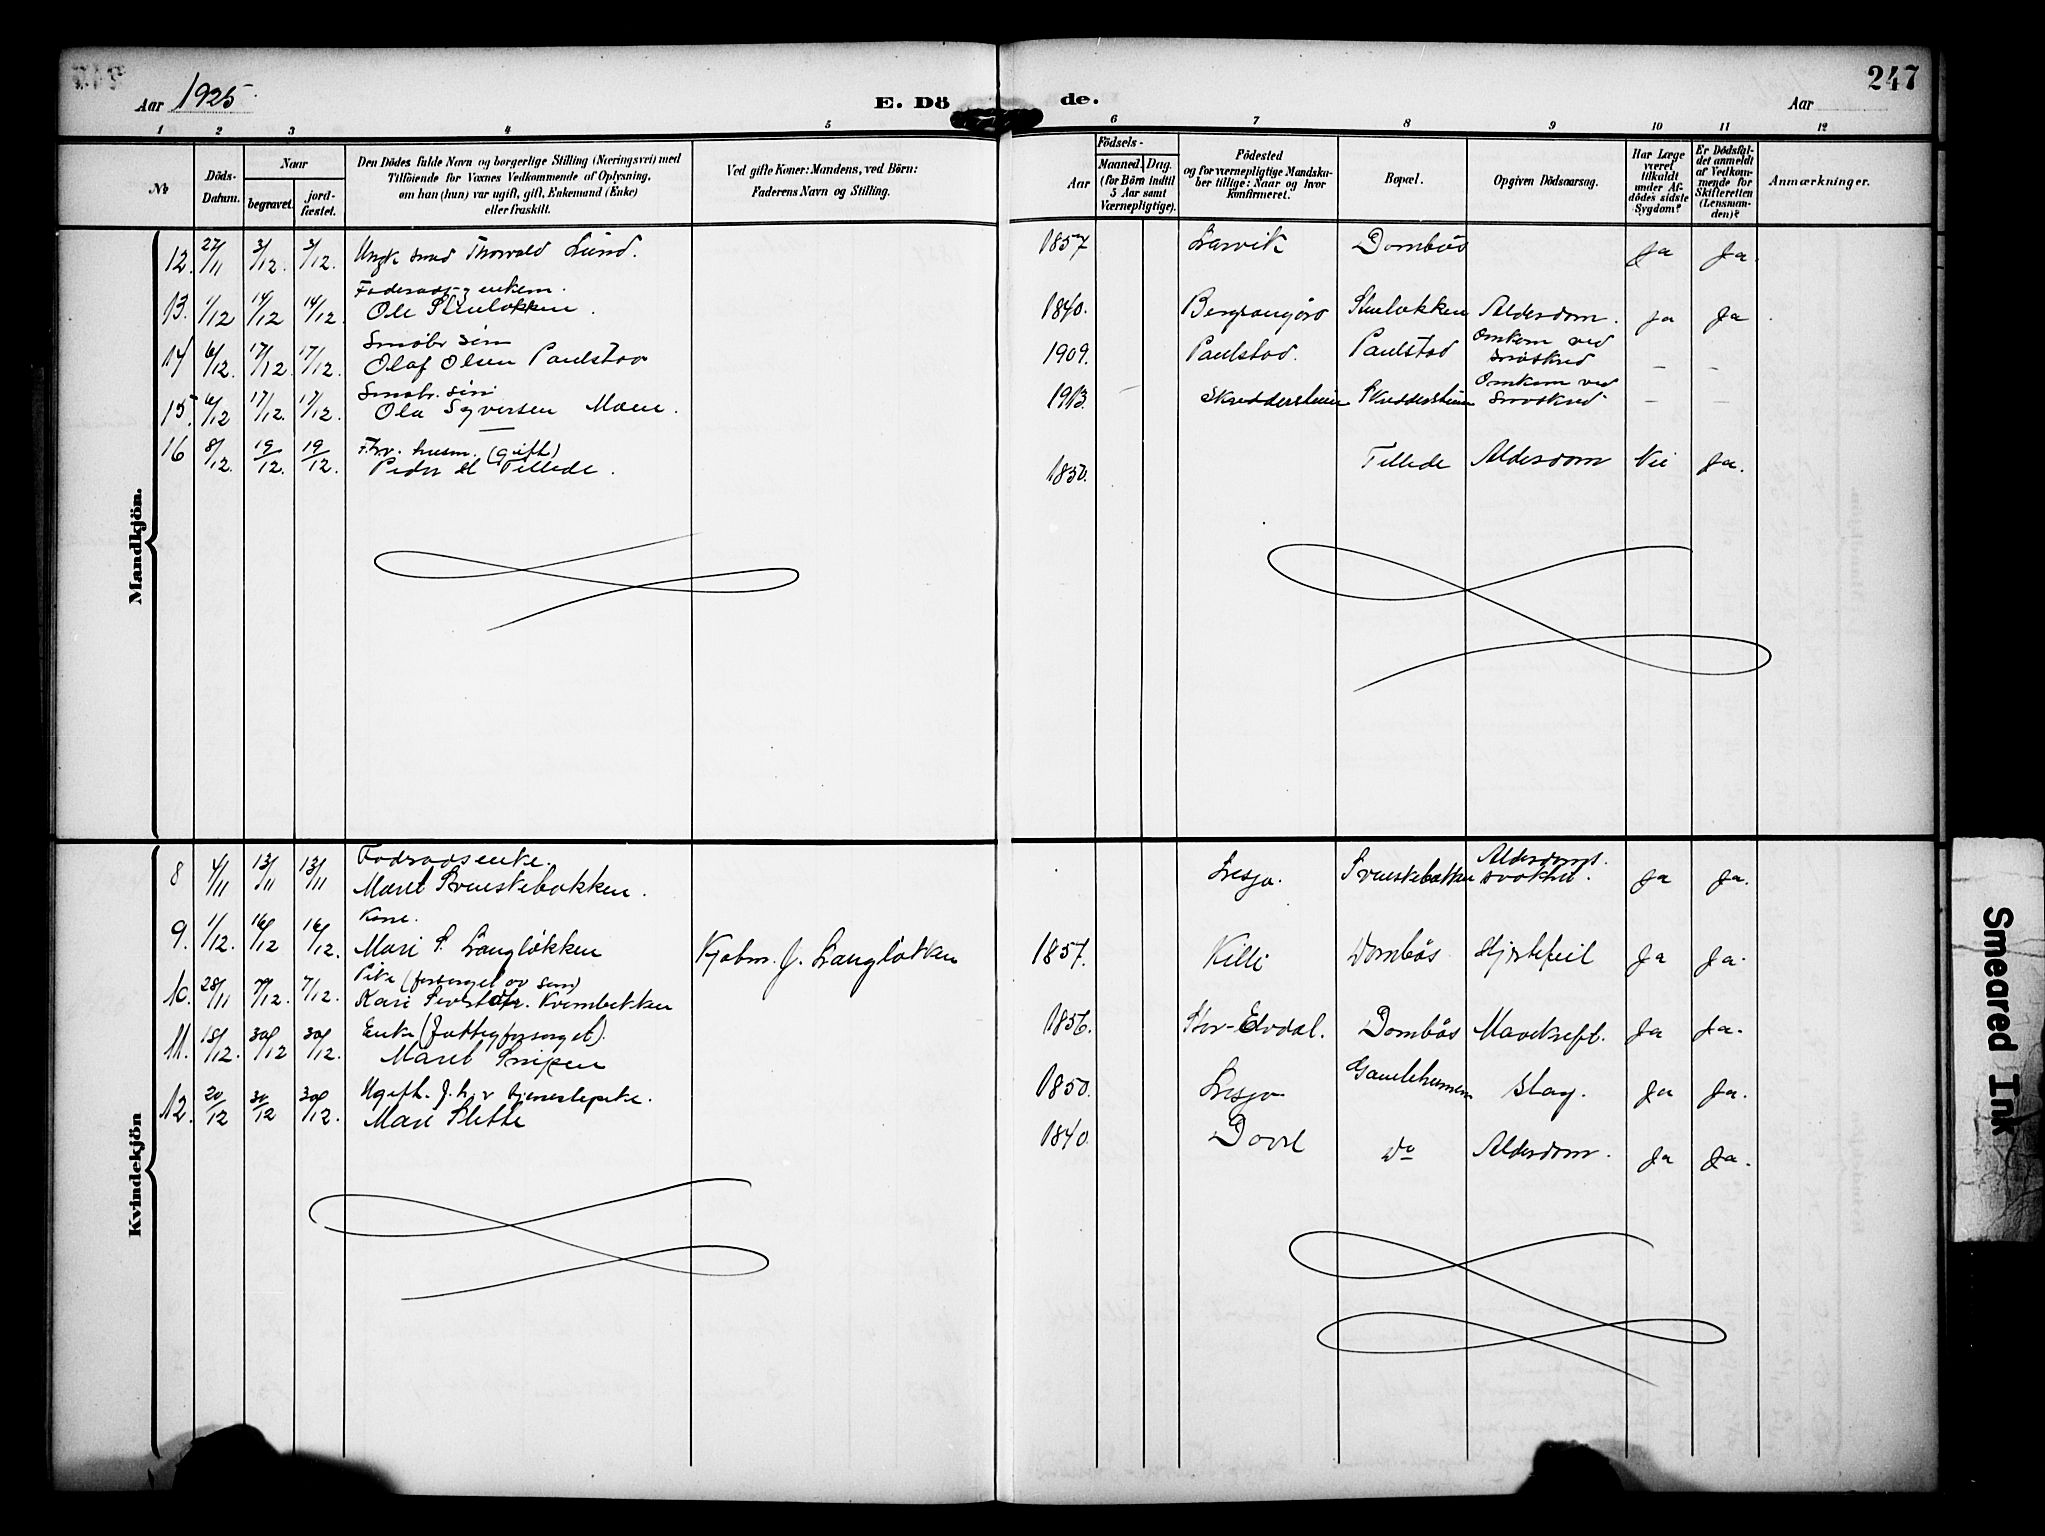 Aar 1925.
E. Dö
de.
247
Aar
1 2 3 4 5 6 7 8 9 10 11 12
No
Döds-
Datum.
Naar
begravet.
jord-
fæstet.
Den Dödes fulde Navn og borgerlige Stilling (Næringsvei) med
Tilföiende for Voxnes Vedkommende af Oplysning,
om han (hun) var ugift, gift, Enkemand (Enke)
eller fraskilt.
Ved gifte Koner: Mandens, ved Börn:
Faderens Navn og Stilling.
Födsels-
Aar
Maaned. Dag.
(for Börn indtil
5 Aar samt
Værnepligtige).
Födested
og for værnepligtige Mandska-
ber tillige: Naar og hvor
Konfirmeret.
Bopæl.
Opgiven Dödsaarsag.
Har Læge
været
tilkaldt
under Af-
dödes sidste
Sygdom?
Er Dödsfal-
det anmeldt
af Vedkom-
mende for
Skifteretten
(Lensman-
den)?
Anmærkninger.
Mandkjön.
12. 27/11 3/12. 3/12. Ungk. smed Thorvald Lund. 1857 Larvik Dombås Ja Ja.
Föderaads- enkem.
13. 1/12 14/12 14/12. Ole Stenløkken. 1840. Stenløkken Alderdom. Ja Ja.
Småbr. sön
14 6/12. 17/12. 17/12. Olaf Olsen Paulstad 1909. Paulstad. Paulstad Omkom ved
snöskred – –
Småbr. sön
15. 6/12 17/12. 17/12. Ola Syversen Moen. 1913. – Skuddersheim Skuddersheim Omkom ved
Snöskred – –
16 8/12. 19/12. 19/12. Fhv. husm. (gift)
Peder H Tillede. 1850. Tillede Alderdom Nei Ja.
Kvindekjön
8 4/11 13/11 13/11 Föderaadsenke.
Marit Svenskebakken. Lesja. Svenskebakken Alderdoms.
svakhet. Ja Ja.
9. 1/12. 16/12 16/12. Kone.
Mari S. Langløkken Kjøbm. J. Langløkken 1857. Killi Dombås Hjertefeil Ja Ja.
10. 28/11 7/12. 7/12. Pike (forsørget av sön)
Kari Kvernbekken 1856. Stor-Elvdal. Dombås Mavekreft. Ja Ja.
11. 18/12. 30/12 30/12. Enke (fattigforsörget).
Marit Snipen 1850. Lesja Gamlehjemmen Slag. Ja Ja.
12. 20/12 30/12 30/12. Ugift. f. h. v tjenestepike.
Mari Slette 1840. Dovre Do Alderdom. Ja Ja.
Smeared Ink